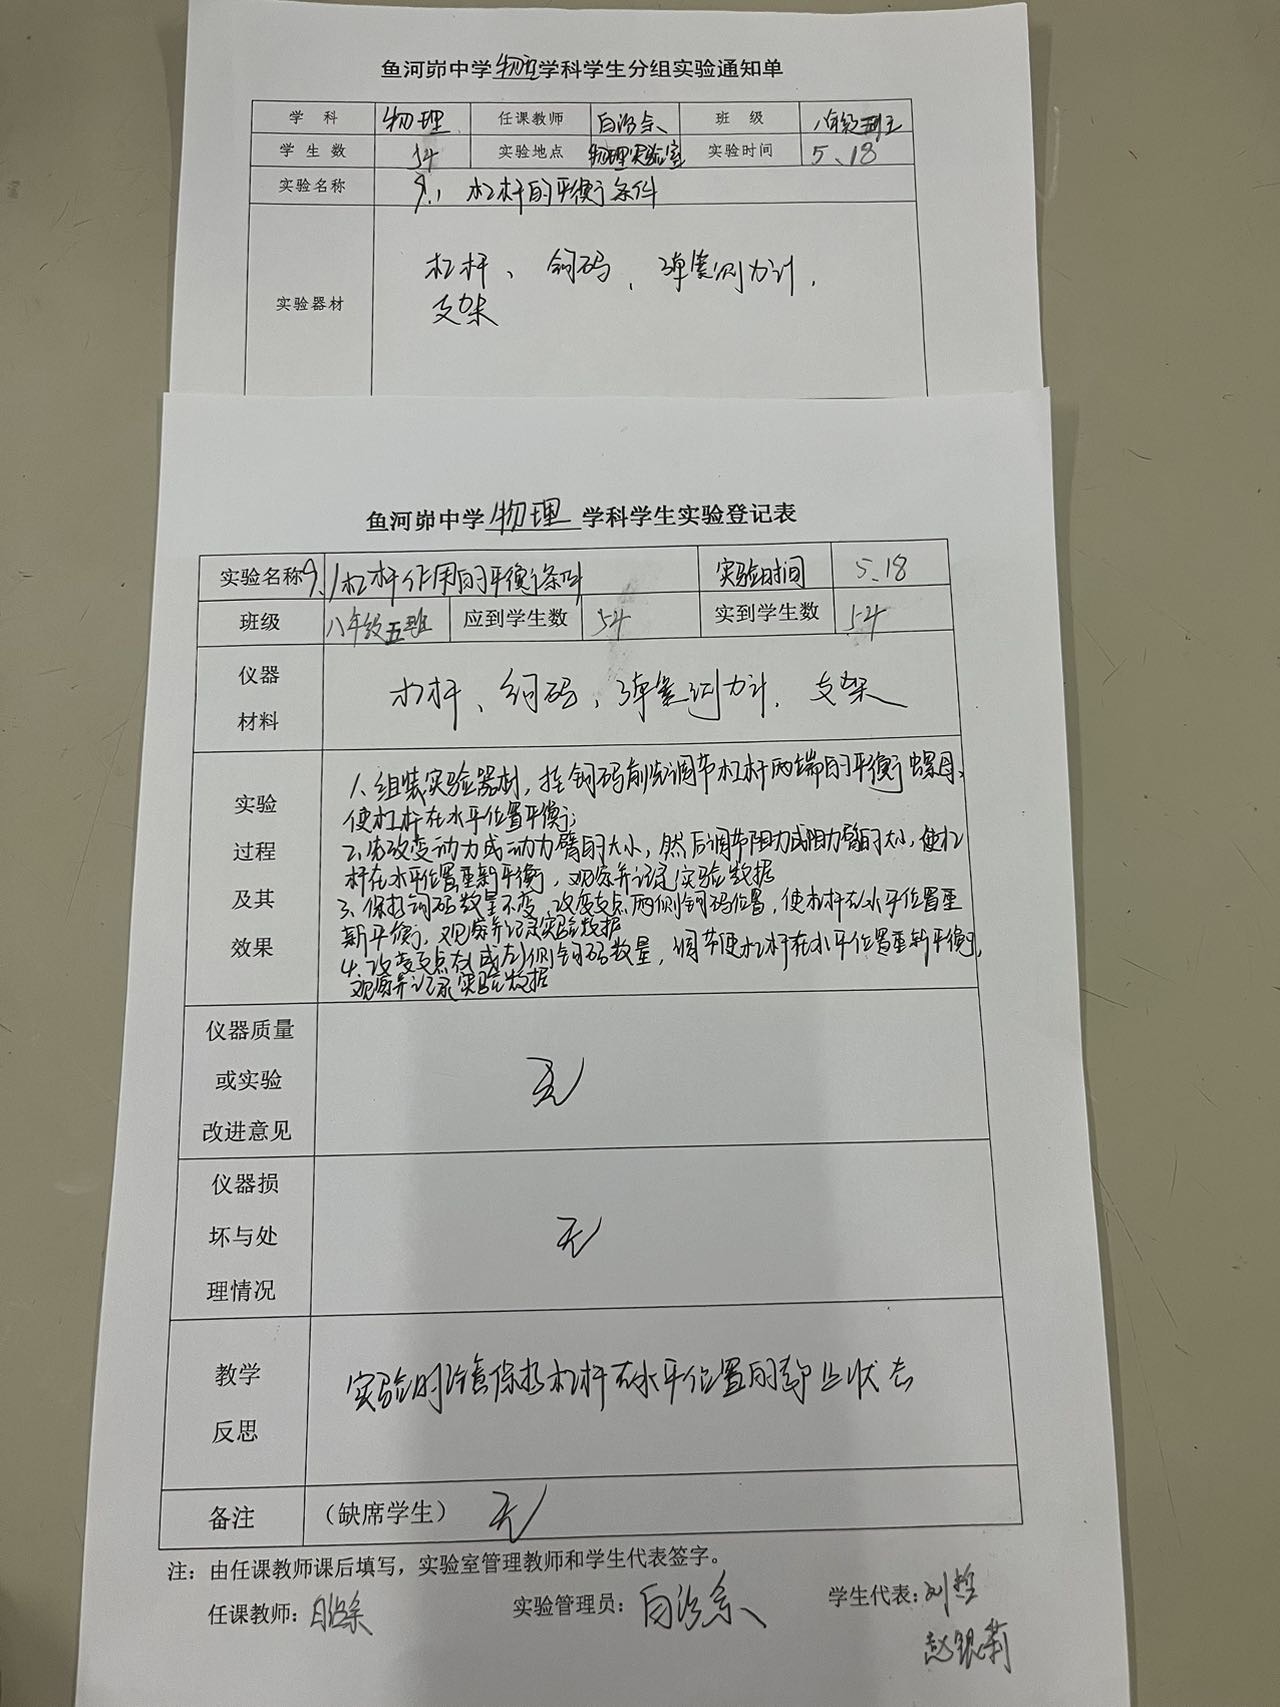 鱼河峁中学物理学科学生分组实验通知单
学 科 物理 任课教师 白治余 班 级 八年级五班
学 生 数 54 实验地点 物理实验室 实验时间 5.18
实验名称 9.1 杠杆的平衡条件
实验器材 杠杆、钩码、弹簧测力计、
支架
鱼河峁中学物理学科学生实验登记表
实验名称 9.1杠杆作用的平衡条件 实验时间 5.18
班级 八年级五班 应到学生数 54 实到学生数 54
仪器材料 杠杆、钩码、弹簧测力计、支架
实验过程及其效果
1、组装实验器材，挂钩码前先调节杠杆两端的平衡螺母，
使杠杆在水平位置平衡；
2、先改变动力或动力臂的大小，然后调节阻力或阻力臂的大小，使杠
杆在水平位置重新平衡，观察并记录实验数据
3、保持钩码数量不变，改变支点两侧钩码位置，使杠杆在水平位置重
新平衡，观察并记录实验数据
4、改变支点右(或左)侧钩码数量，调节使杠杆在水平位置重新平衡，
观察并记录实验数据
仪器质量或实验改进意见 无
仪器损坏与处理情况 无
教学反思 实验时注意保持杠杆在水平位置的静止状态
备注 （缺席学生） 无
注：由任课教师课后填写，实验室管理教师和学生代表签字。
任课教师： 实验管理员： 学生代表：刘哲
赵银莉